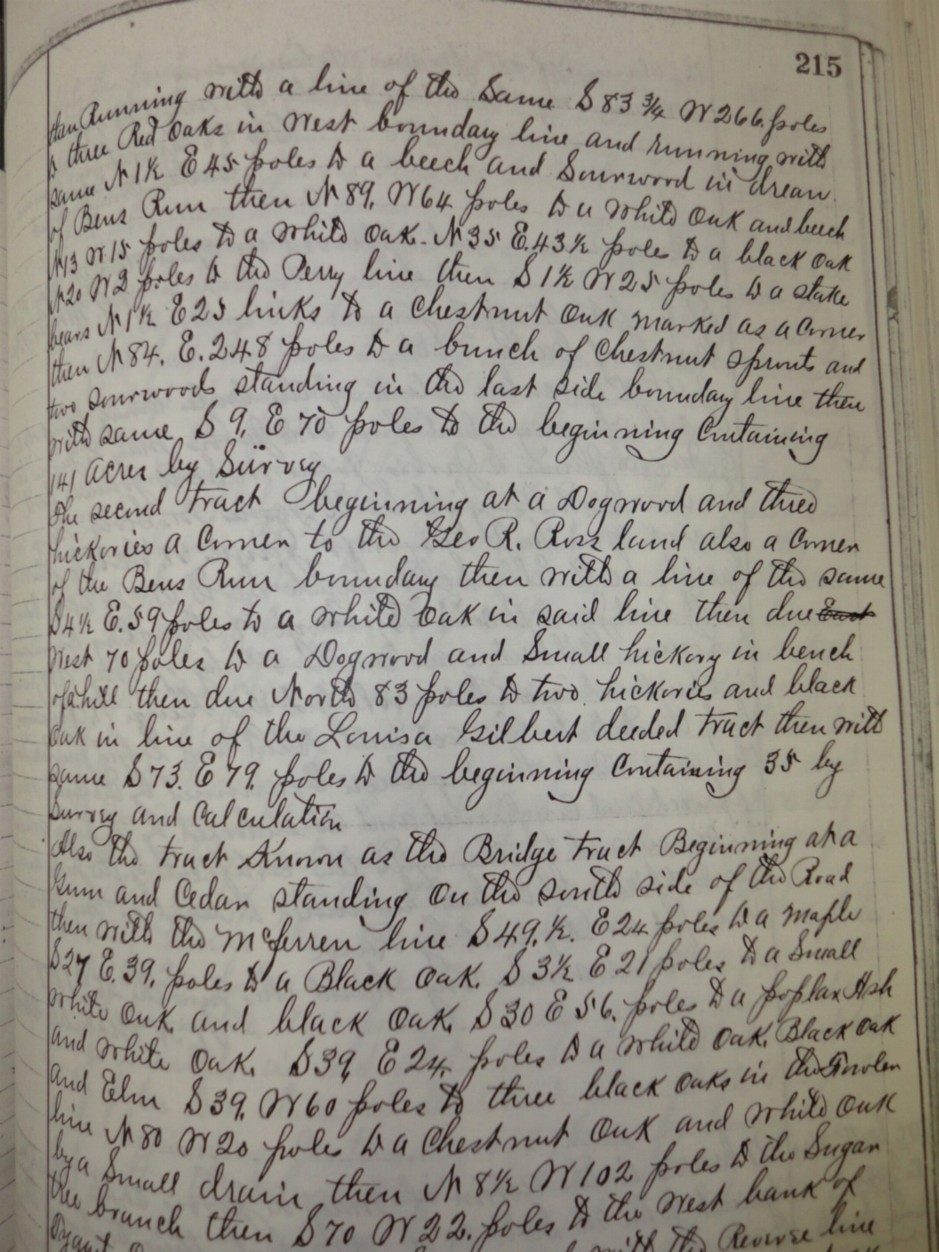 215
then Running with a line of the Same S 83 3/4 W 266 poles
to three Red Oaks in West boundary line and running with
same N 1 1/2 E 45 poles to a beech and Sourwood in drean
of Bens Run then N 89, W 64 poles to a White Oak and beech
N 13 W 15 poles to a White Oak. N 35 E. 43 1/2 poles to a black Oak
N 20 W 2 poles to the Perry line then S 1 1/2 W 25 poles to a stake
bears N 1 1/2 E 25 links to a Chestnut Oak marked as a Corner
then N 84. E. 248 poles to a bunch of Chestnut sprouts and
two Sourwoods standing in the last side boundary line then
with same S 9, E 70 poles to the beginning Containing
141 Acres by Survey
the second tract beginning at a Dogwood and three
hickories a Corner to the Geo R. Ross land also a Corner
of the Bens Run boundary then with a line of the same
S 4 1/2 E. 59 poles to a white Oak in said line then due East
West 70 poles to a Dogwood and Small hickory in bench
of a hill then due North 83 poles to two hickories and black
Oak in line of the Louisa Gilbert deeded tract then with
same S 73. E 79, poles to the beginning Containing 35 by
Survey and Calculation
Also the tract Known as the Bridge tract Beginning at a
Gum and Cedar standing on the south side of the Road
then with the McFerren line S 49, 1/2. E 24 poles to a maple
S 27 E. 39, poles to a Black Oak. S 3 1/2 E 21 poles to a Small
White Oak and black Oak, S 30 E 56. poles to a poplar Ash
and White Oak. S 39, E 24, poles to a White Oak, Black Oak
and Elm S 39, W 60 poles to three black Oaks in the
line N 80 W 20 poles to a Chestnut Oak and White Oak
by a Small drain then N 8 1/2 W 102 poles to the Sugar
tree branch then S 70 W 22. poles to the West bank of
with the Reverse line